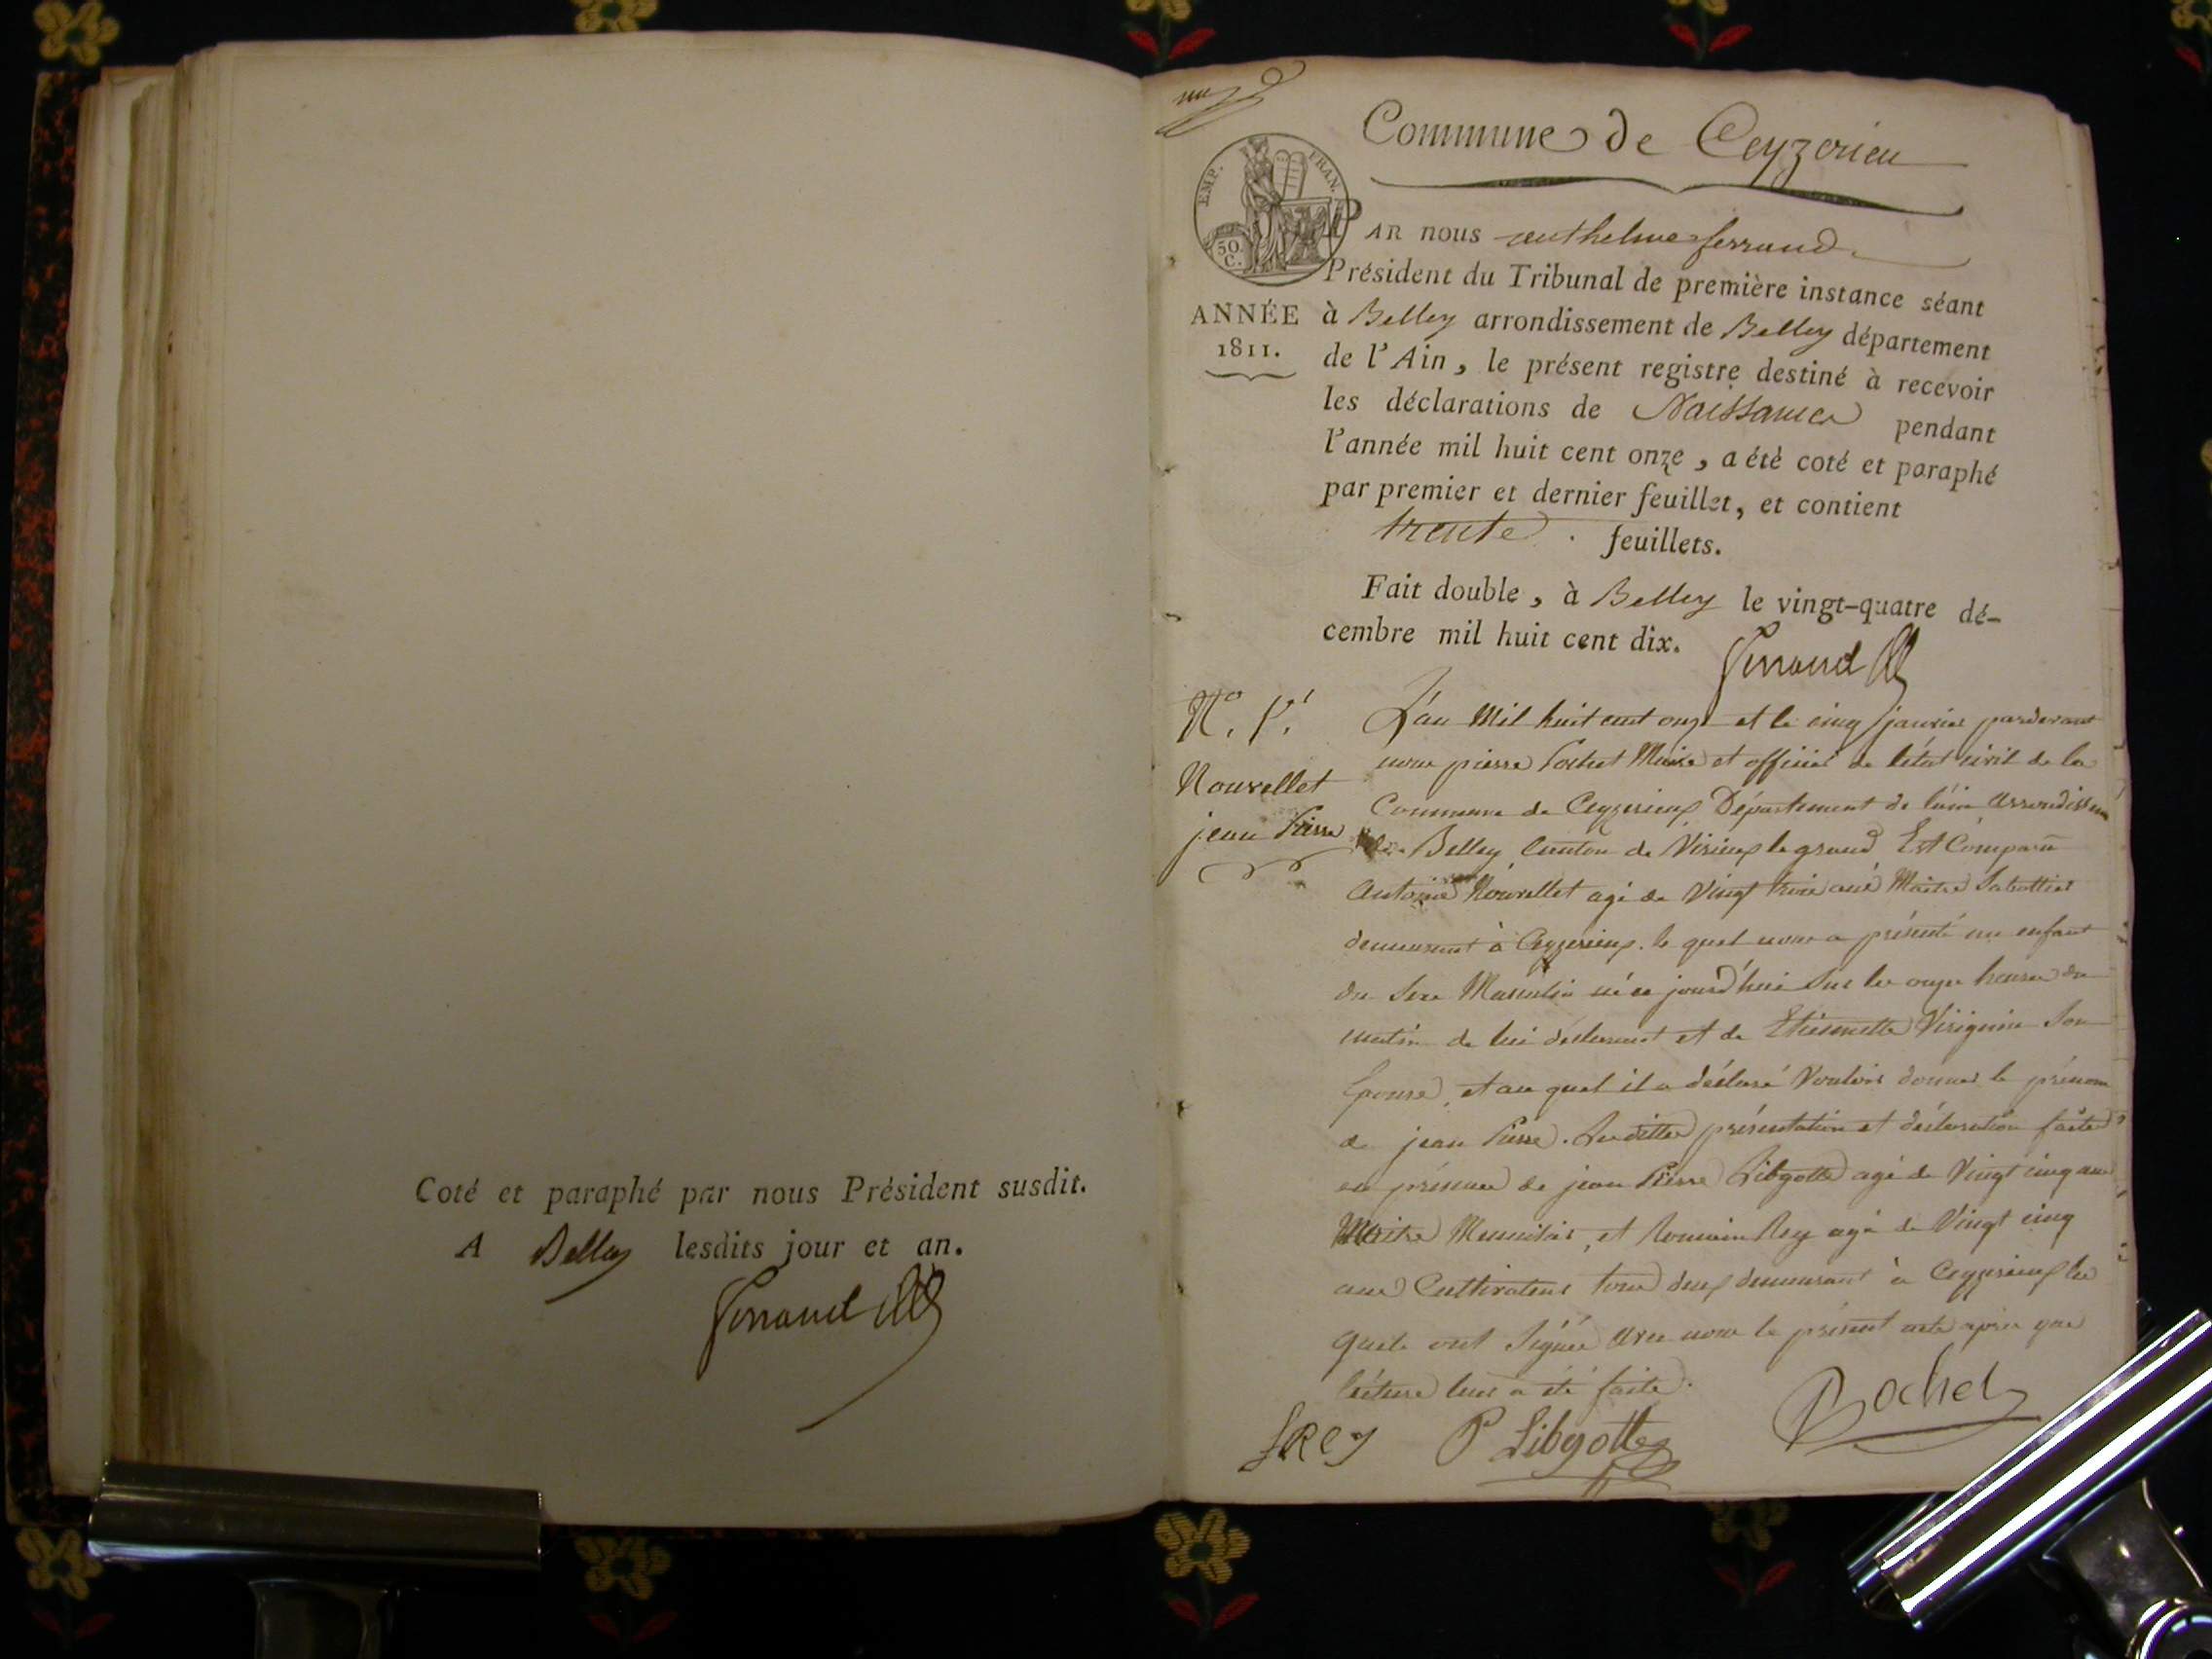 Coté et paraphé par nous Président susdit.
A Belley lesdits jour et an.
Ferrand
Commune de Ceyzerieu
EMP. FRAN.
50. C.
ANNÉE
1811.
PAR nous anthelme ferrand
Président du Tribunal de première instance séant
à Belley arrondissement de Belley département
de l'Ain, le présent registre destiné à recevoir
les déclarations de Naissance pendant
l'année mil huit cent onze, a été coté et paraphé
par premier et dernier feuillet, et contient
trente feuillets.
Fait double, à Belley le vingt-quatre dé-
cembre mil huit cent dix.
Ferrand
N.o 1.
Nouvellet
jean Pierre
L'an Mil huit cent onze et le cinq janvier pardevant
nous pierre Pochet Maire et officier de l'état civil de la
Commune de Ceyzerieux Département de l'ain arrondissem
de Belley Canton de Virieux le grand Est Comparu
antoine Nouvellet agé de Vingt trois ans Maitre Sabottier
demeurant à Ceyzerieux. le quel nous a présenté un enfant
du Sexe Masculin né ce jourd'hui Sur les onze heures du
matin de lui déclarant et de Etiennette Virignin Son
Epouse, et au quel il a déclaré Vouloir donner le prénom
de jean Pierre. Les dittes présentation et déclaration faites
en présence de jean Pierre Libgotte agé de Vingt cinq ans
Maitre Menuisier, et Romain Rey agé de Vingt cinq
ans Cultivateur tous deux demeurant à Ceyzerieux les
quels ont Signés avec nous le présent acte après que
lécture leur a été faite.
Rey
P Libgotte
Pochet